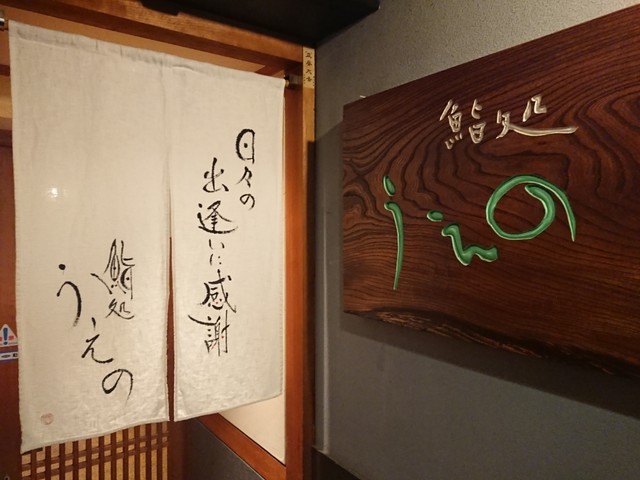 日々の
出逢いに感謝
鮨処
うえの
鮨処
うえの